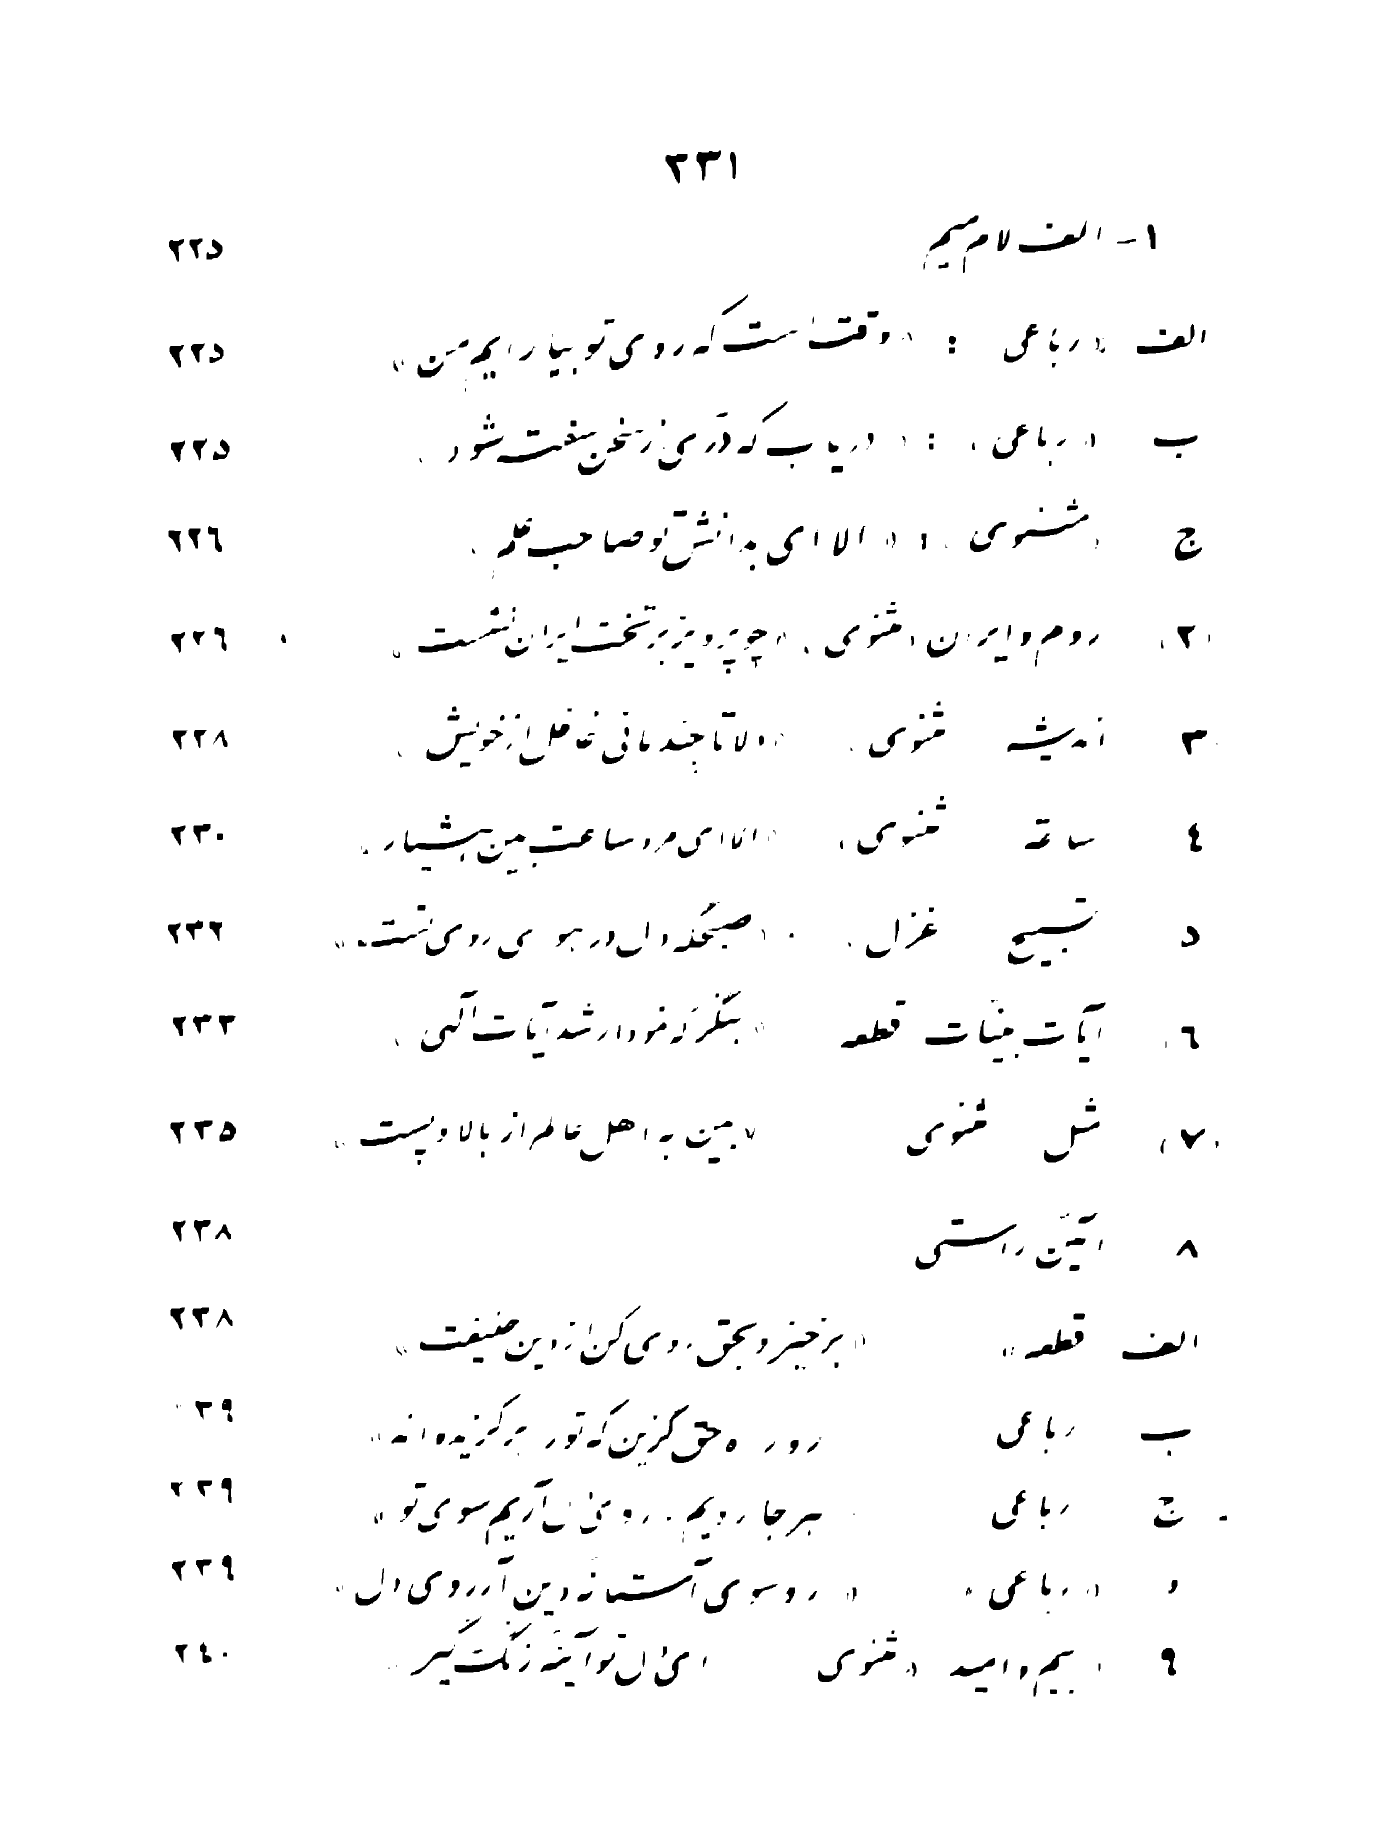 ٢٣١
١- الف لام میم ٢٢٥
الف «رباعی» : «وقتست که روی تو بیارایم من» ٢٢٥
ب «رباعی» : «دریاب که دُری ز سخن سفت شود» ٢٢٥
ج «مثنوی» : «الا ای بدانش تو صاحب علم» ٢٢٦
(٢) روم و ایران «مثنوی» «چو پرویز بر تخت ایران نشست» ٢٢٦
٣ اندیشه مثنوی «الا تا چند مانی غافل از خویش» ٢٢٨
٤ ساعة مثنوی «الا ای مرد ساعت بین هشیار» ٢٣٠
٥ تسبیح غزل «صبحگه دل در هوی روی تست» ٢٣٢
٦ آیات بینّات قطعه «بنگر که نمودار شد آیات آلهی» ٢٣٣
(٧) مثل مثنوی «ببین به اهل عالم از بالا و پست» ٢٣٥
٨ آئین راستی ٢٣٨
الف قطعه» «برخیز و بحق روی کن از دین حنیفت» ٢٣٨
ب رباعی رو ره حق گزین که تو را برگزیده‌اند» ٢٣٩
ج رباعی هر جا رویم روی دل آریم سوی تو» ٢٣٩
د «رباعی» «رو سوی آستانه دین آر روی دل» ٢٣٩
٩ بیم و امید «مثنوی ای دل تو آینه زنگ گیر ٢٤٠